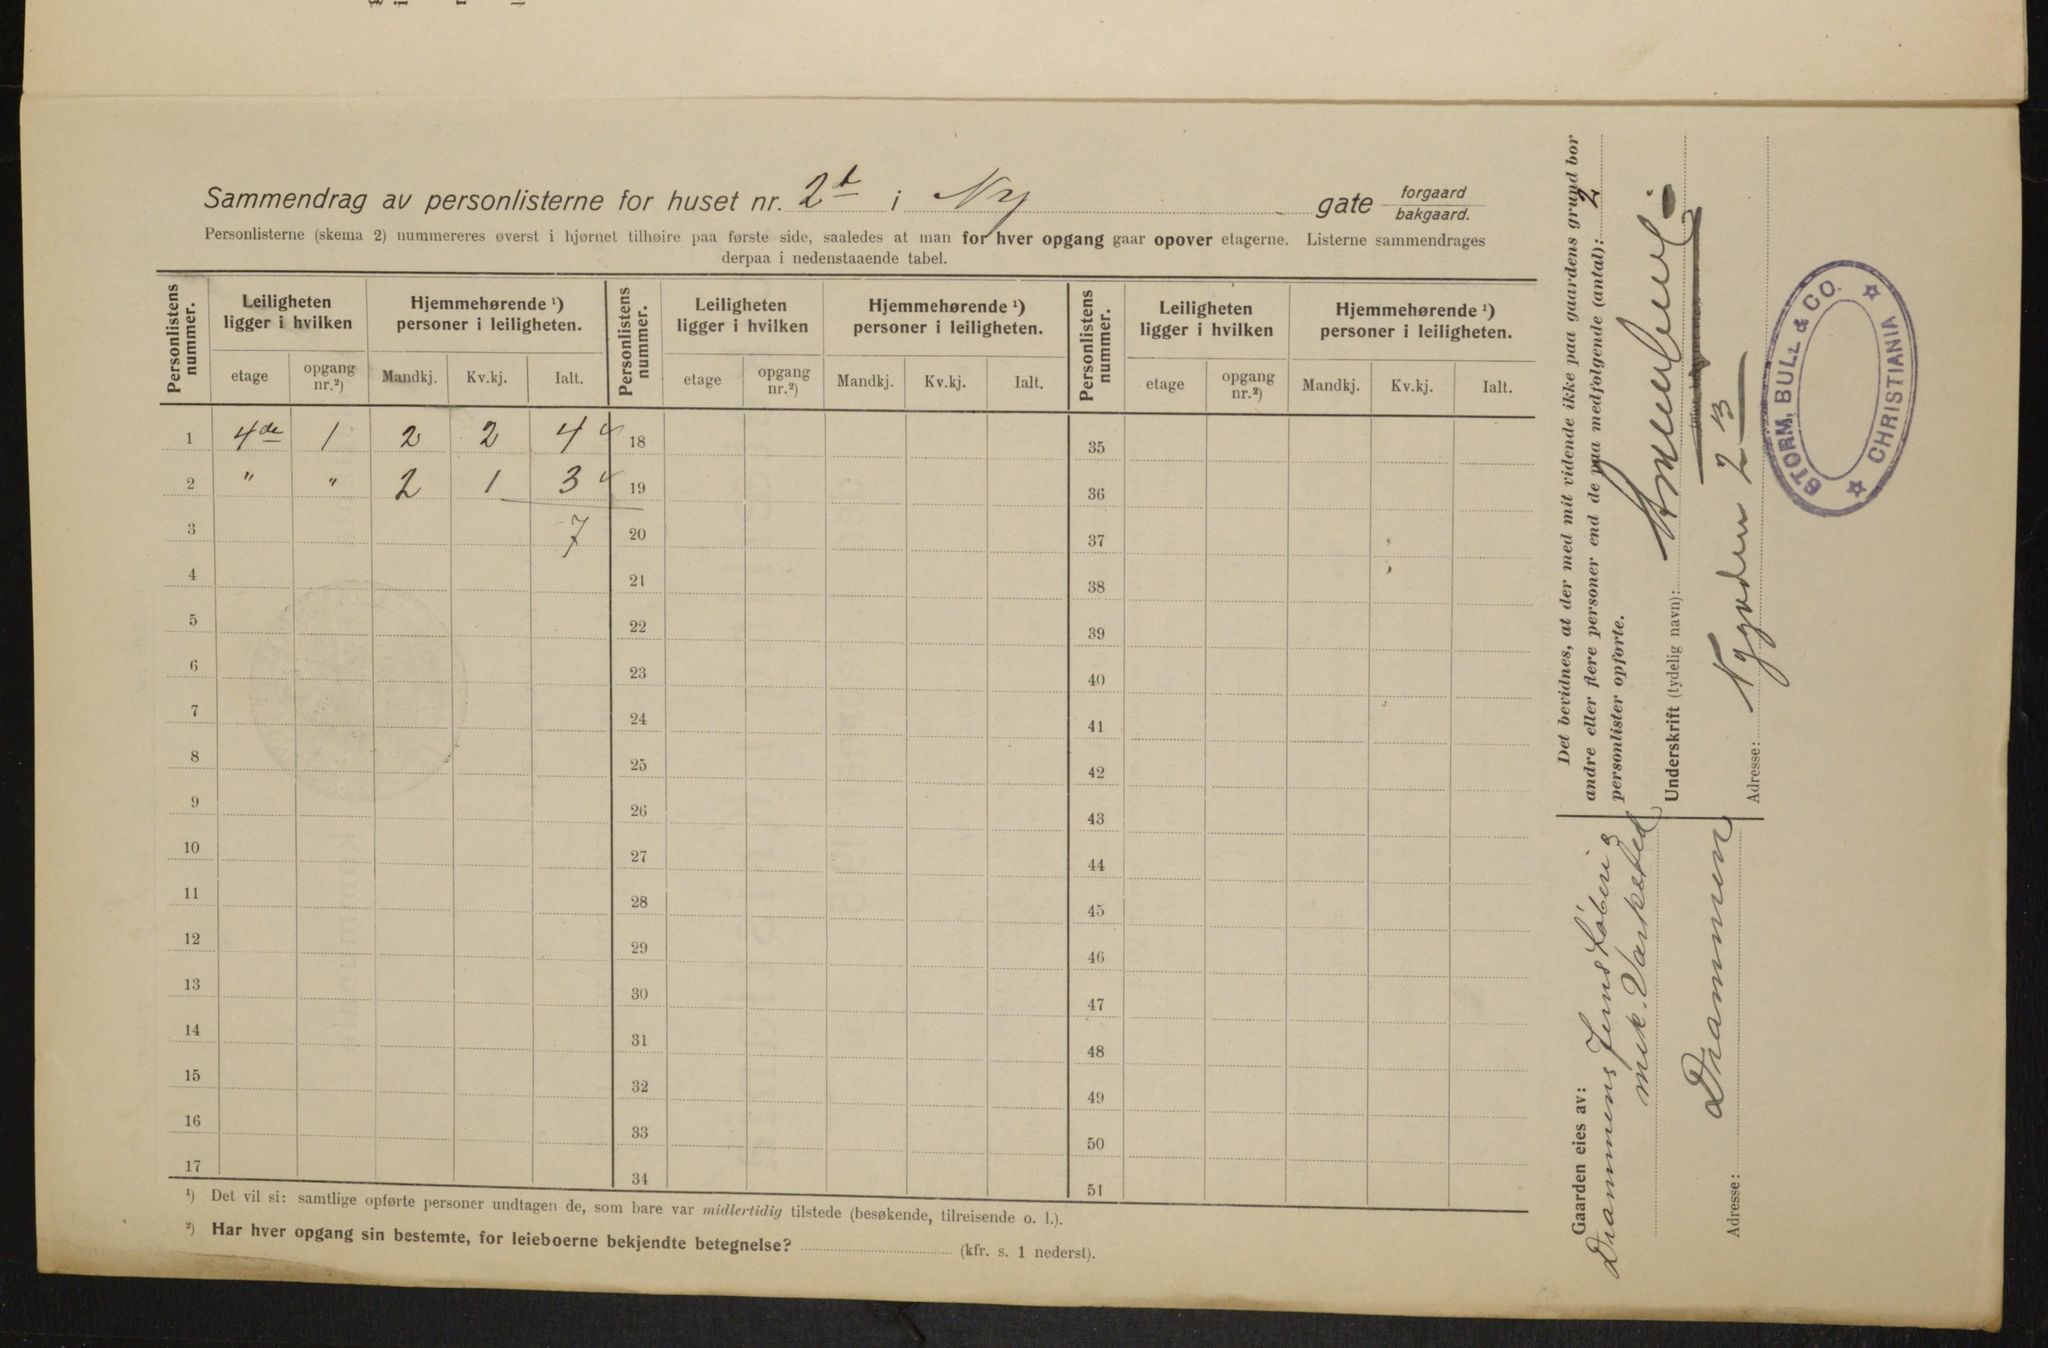 Sammendrag av personlisterne for huset nr. 2b i Ny gate forgaard bakgaard.
Personlisterne (skema 2) nummereres øverst i hjørnet tilhøire paa første side, saaledes at man for hver opgang gaar opover etagerne. Listerne sammendrages
derpaa i nedenstaaende tabel.
Personlistens nummer. Leiligheten ligger i hvilken Hjemmehørende ¹) personer i leiligheten. Personlistens nummer. Leiligheten ligger i hvilken Hjemmehørende ¹) personer i leiligheten. Personlistens nummer. Leiligheten ligger i hvilken Hjemmehørende ¹) personer i leiligheten.
etage opgang nr.²) Mandkj. Kv.kj. Ialt. etage opgang nr.²) Mandkj. Kv.kj. Ialt. etage opgang nr.²) Mandkj. Kv.kj. Ialt.
1 4de 1 2 2 4 18 35
2 " " 2 1 3 19 36
3 7 20 37
4 21 38
5 22 39
6 23 40
7 24 41
8 25 42
9 26 43
10 27 44
11 28 45
12 29 46
13 30 47
14 31 48
15 32 49
16 33 50
17 34 51
¹) Det vil si: samtlige opførte personer undtagen de, som bare var midlertidig tilstede (besøkende, tilreisende o. l.).
²) Har hver opgang sin bestemte, for leieboerne bekjendte betegnelse? (kfr. s. 1 nederst).
Det bevidnes, at der med mit vidende ikke paa gaardens grund bor
andre eller flere personer end de paa medfølgende (antal): 2
personlister opførte.
Underskrift (tydelig navn):
Adresse: Nygaden 2 B
STORM, BULL & CO.
CHRISTIANIA
Gaarden eies av:
Drammens Jernstøberi &
mek. Værksted
Adresse: Drammen